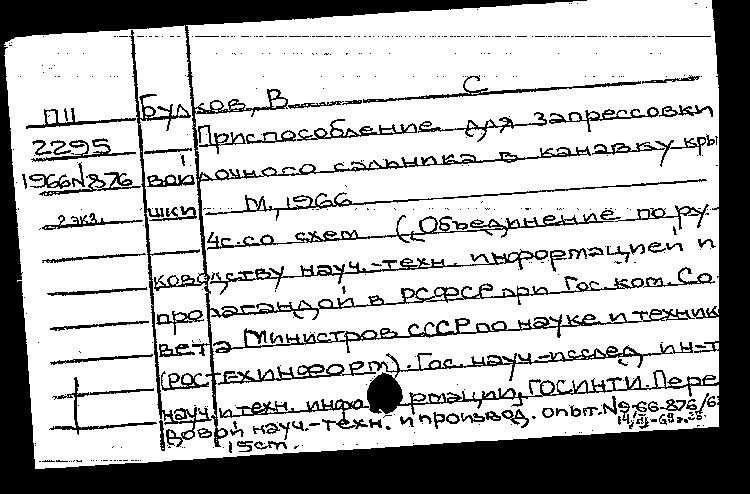 Булков, В С
П11
Приспособление для запрессовки
2295
войлочного сальника в канавку кры
1966N876
шки М., 1966
2 экз.
4с. со схем (Объединение по ру-
ководству науч.-техн. информацией и
пропагандой в РСФСР при Гос. ком. Со-
вета Министров СССР по науке и техник
(РОСТЕХИНФОРМ). Гос. науч-исслед. ин-т
науч. и техн. инфо рмации, ГОСИНТИ. Пере
довой науч.-техн. и производ. опыт. N9-66-876/6
15cm.